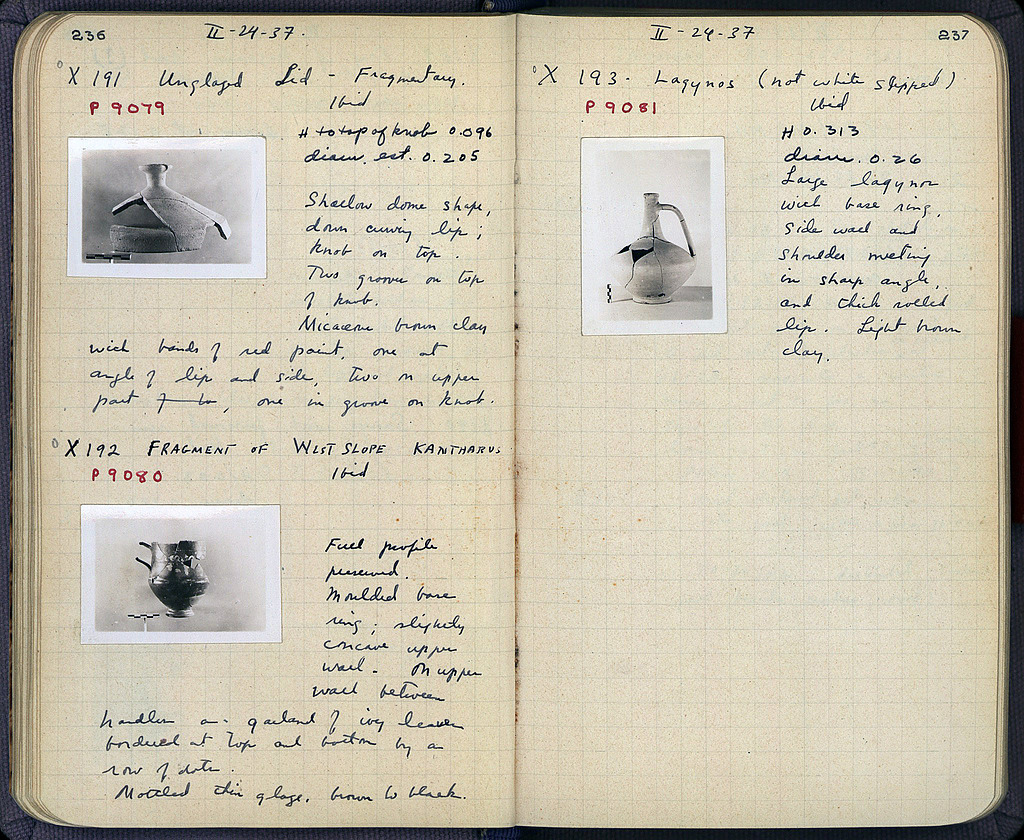 236
II-24-37.
X 191 Unglazed Lid - Fragmentary.
P 9079
Ibid
H to top of knob 0.096
diam. est. 0.205
Shallow dome shape,
down curving lip;
knob on top.
Two grooves on top
of knob.
Micaceous brown clay
with bands of red paint, one at
angle of lip and side, two on upper
part, one in groove on knob.
X 192 FRAGMENT OF WEST SLOPE KANTHARUS
P 9080
Ibid
Full profile
preserved.
Moulded base
ring; slightly
concave upper
wall. On upper
wall between
handles a garland of ivy leaves
bordered at top and bottom by a
row of dots.
Mottled thin glaze, brown to black.
II-24-37
237
X 193. Lagynos (not white slipped)
P 9081
Ibid
H 0.313
diam. 0.26
Large lagynos
with base ring,
side wall and
shoulder meeting
in sharp angle,
and thick rolled
lip. Light brown
clay.